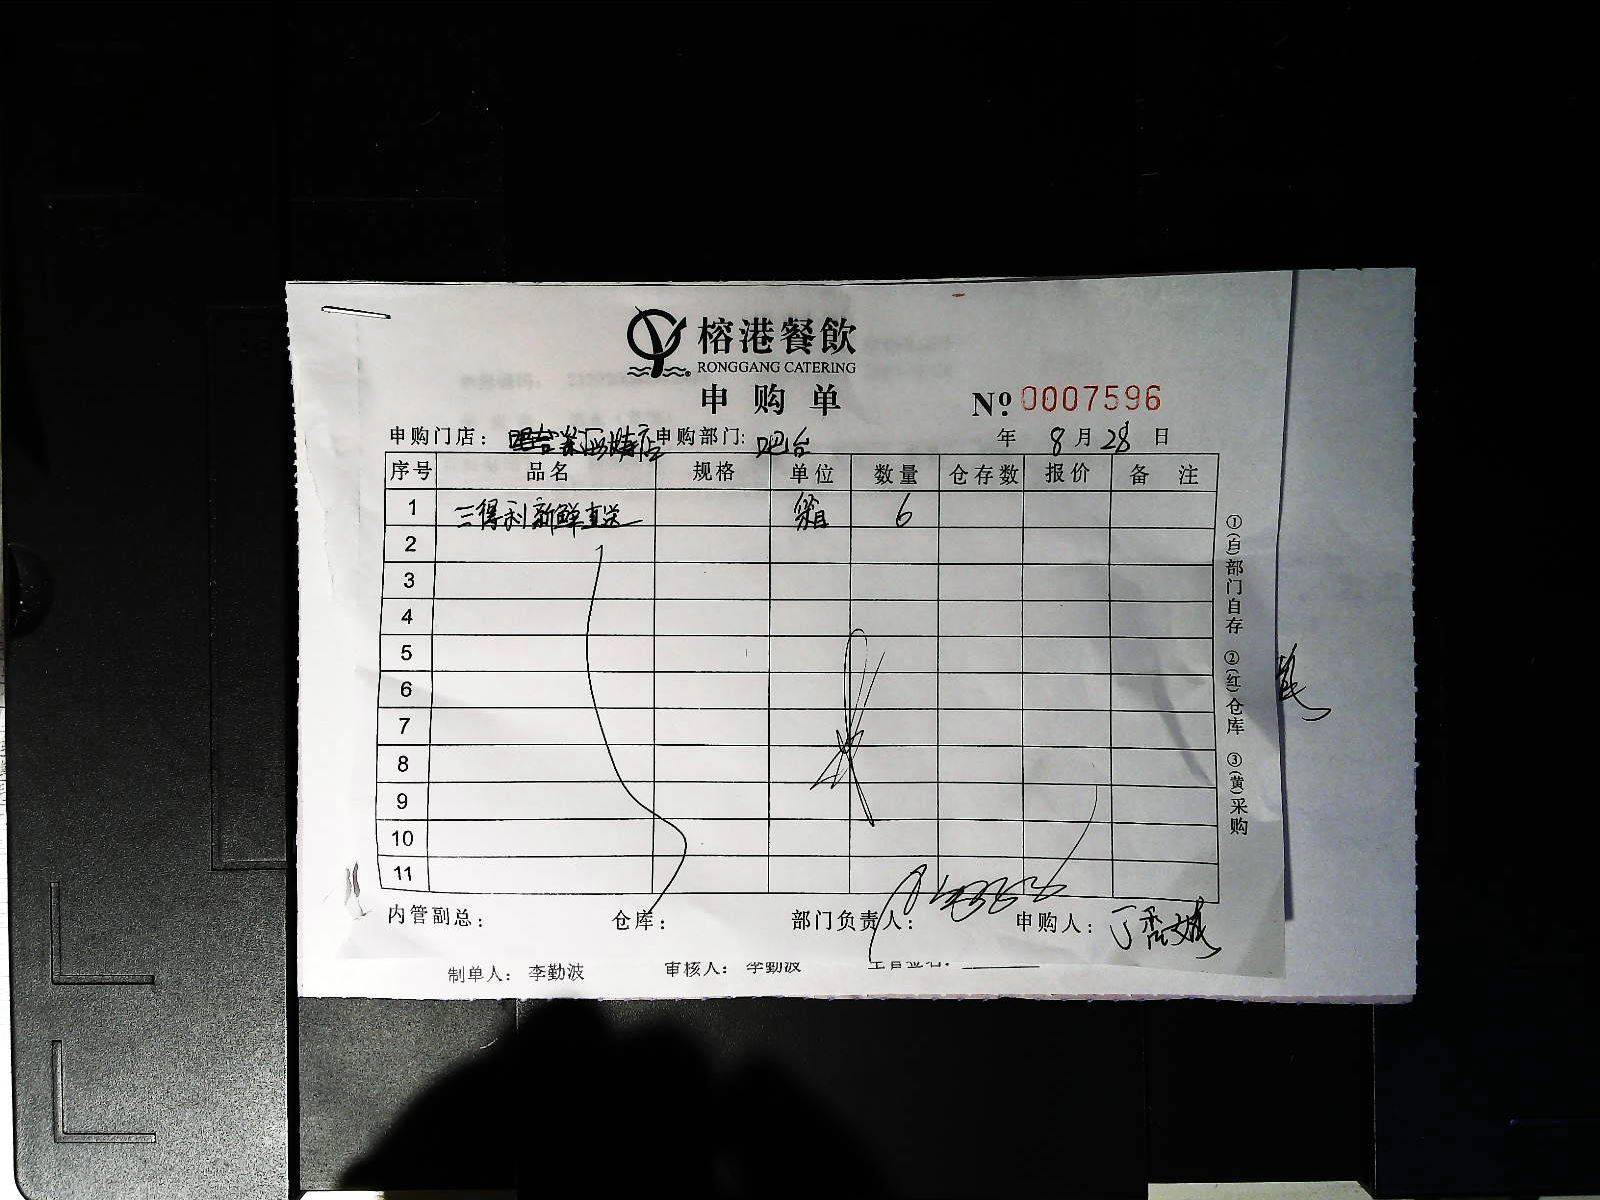 榕港餐飲
RONGGANG CATERING
申购单
№ 0007596
申购门店： 申购部门: 吧台 年 8 月 28 日
序号 品名 规格 单位 数量 仓存数 报价 备 注
1 三得利新鲜直送 箱 6
2
3
4
5
6
7
8
9
10
11
内管副总： 仓库： 部门负责人： 申购人：
①(白)部门自存 ②(红)仓库 ③(黄)采购
制单人： 李勤波 审核人： 李勤波